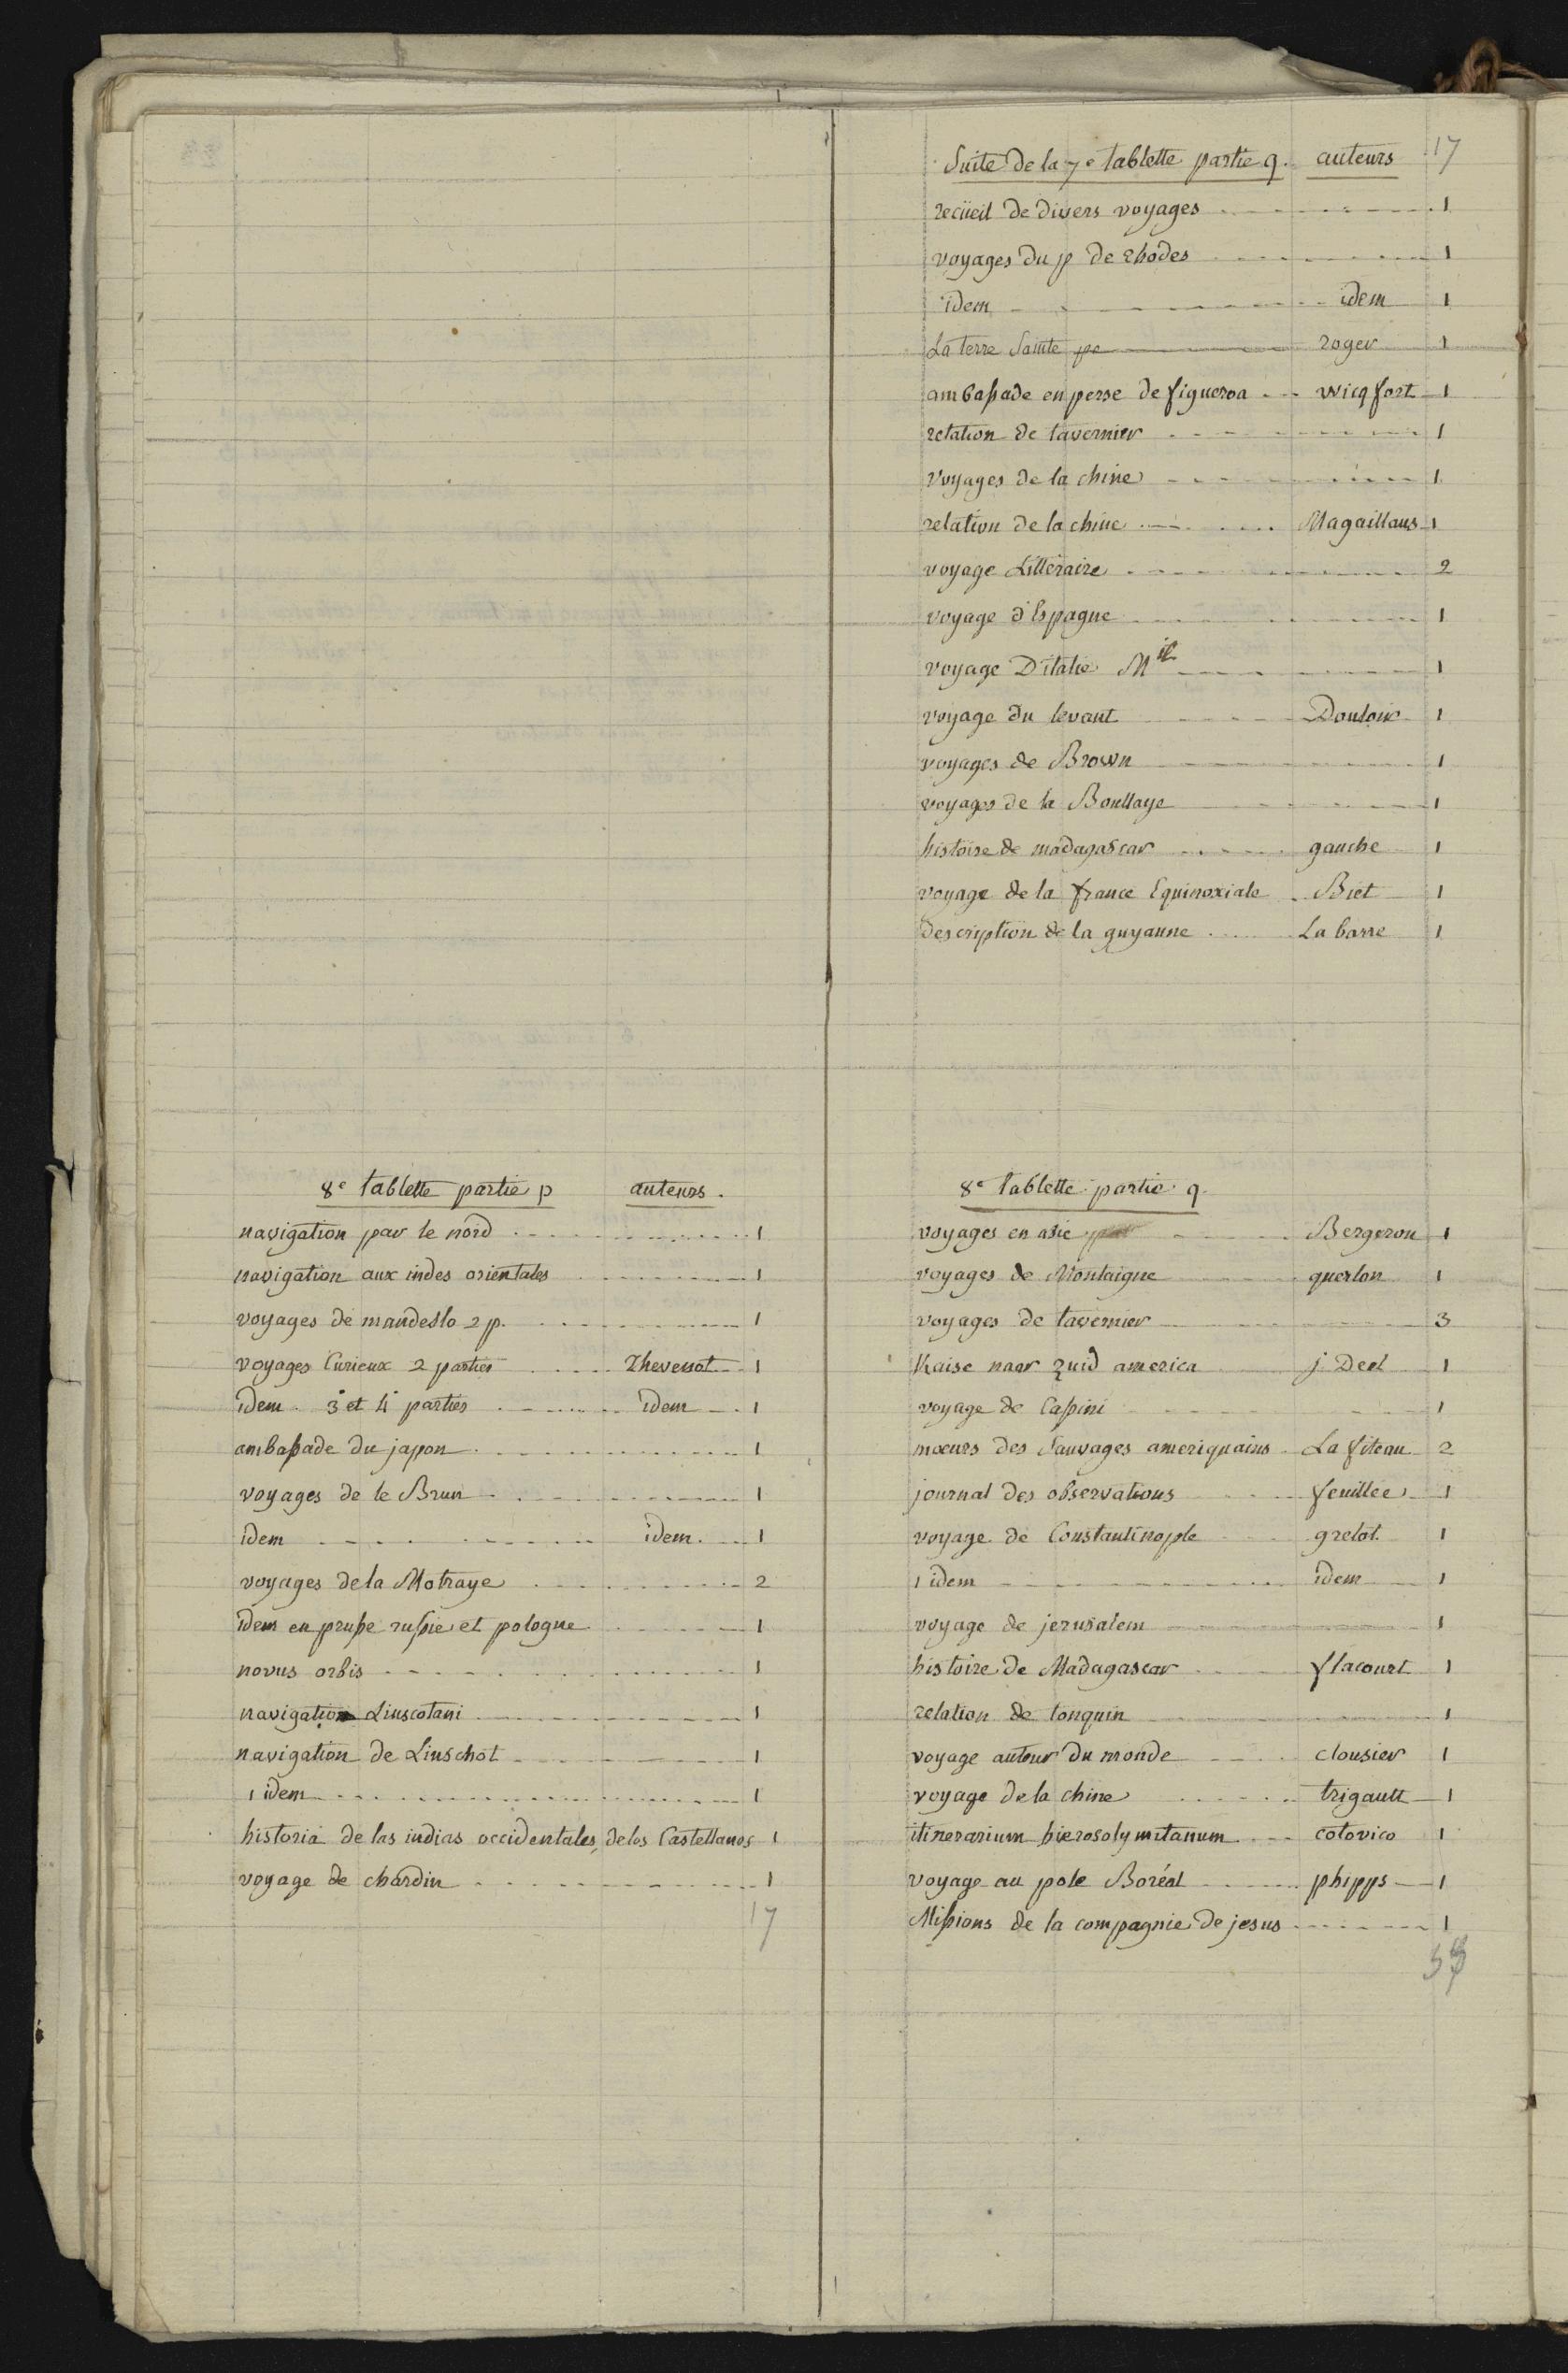 Suite de la 7e tablette partie q. auteurs 17
recüeil de divers voyages 1
voyages du p de rhodes 1
idem idem 1
La terre Sainte pe roger 1
ambassade en perse de figueroa wicqfort 1
relation de tavernier 1
voyages de la chine 1
relation de la chine Magaillans 1
voyage Littéraire 2
voyage d'Espagne 1
voyage D'italie 1
voyage du levant 1
voyages de Brown 1
voyages de la Boullaye 1
histoire de madagascar gauche 1
voyage de la france Equinoxiale Biet 1
description de la guyanne La barre 1
8e tablette partie p auteurs.
navigation par le nord 1
navigation aux indes orientales 1
voyages de mandeslo 2 p. 1
voyages Curieux 2 parties Thevenot 1
idem. 3 et 4 parties idem 1
ambassade du japon 1
voyages de le Brun 1
idem idem. 1
voyages de la Motraye 2
idem en prusse russie et pologne 1
novus orbis 1
navigatio Linscotani 1
navigation de Linschot 1
1 idem 1
historia de las indias occidentales, de los Castellanos 1
voyage de chardin 1
17
8e tablette partie q
voyages en asie par Bergeron 1
voyages de Montaigne querlon 1
voyages de tavernier 3
Kaise naar zuid america j. Deel 1
voyage de Cassini 1
mœurs des Sauvages ameriquains La fiteau 2
journal des observations feuillée 1
voyage de Constantinople grelot 1
1 idem idem 1
voyage de jerusalem 1
histoire de Madagascar flacourt 1
relation de tonquin 1
voyage autour du monde clousier 1
voyage de la chine trigault 1
itinerarium hierosolymitanum cotovico 1
voyage au pole Boréal phipps 1
Missions de la compagnie de jesus 1